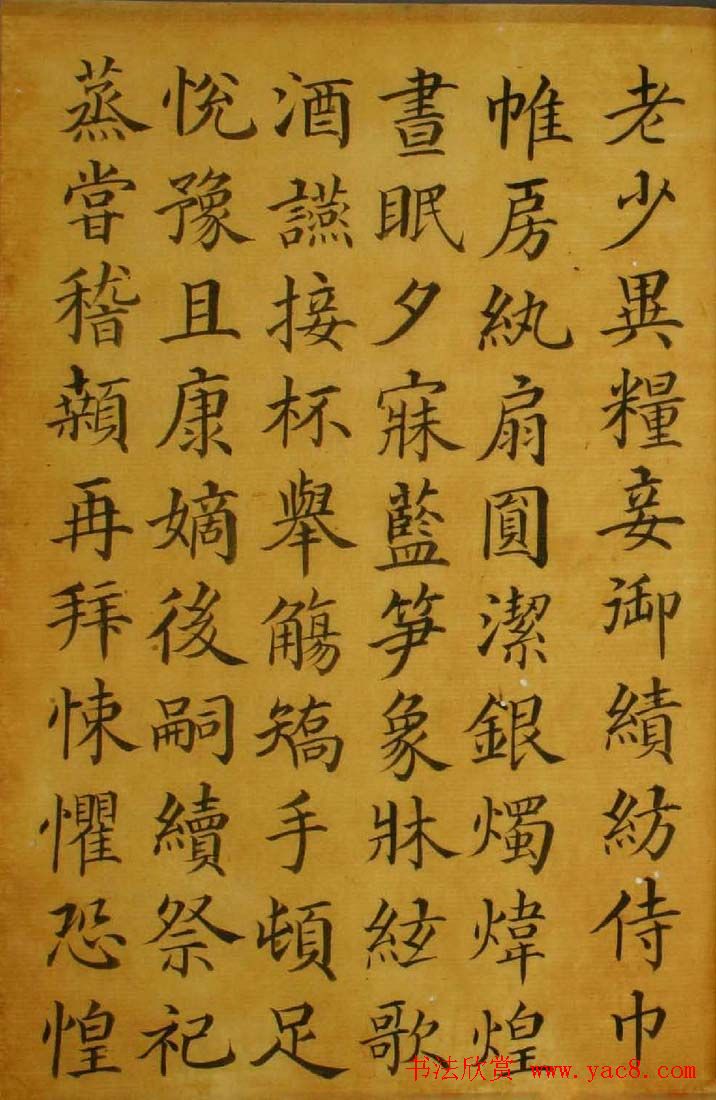 老少異糧妾御績紡侍巾
帷房紈扇圓潔銀燭煒煌
晝眠夕寐藍笋象牀絃歌
酒讌接杯舉觴矯手頓足
悅豫且康嫡後嗣續祭祀
蒸嘗稽顙再拜悚懼恐惶
书法欣赏 www.yac8.com